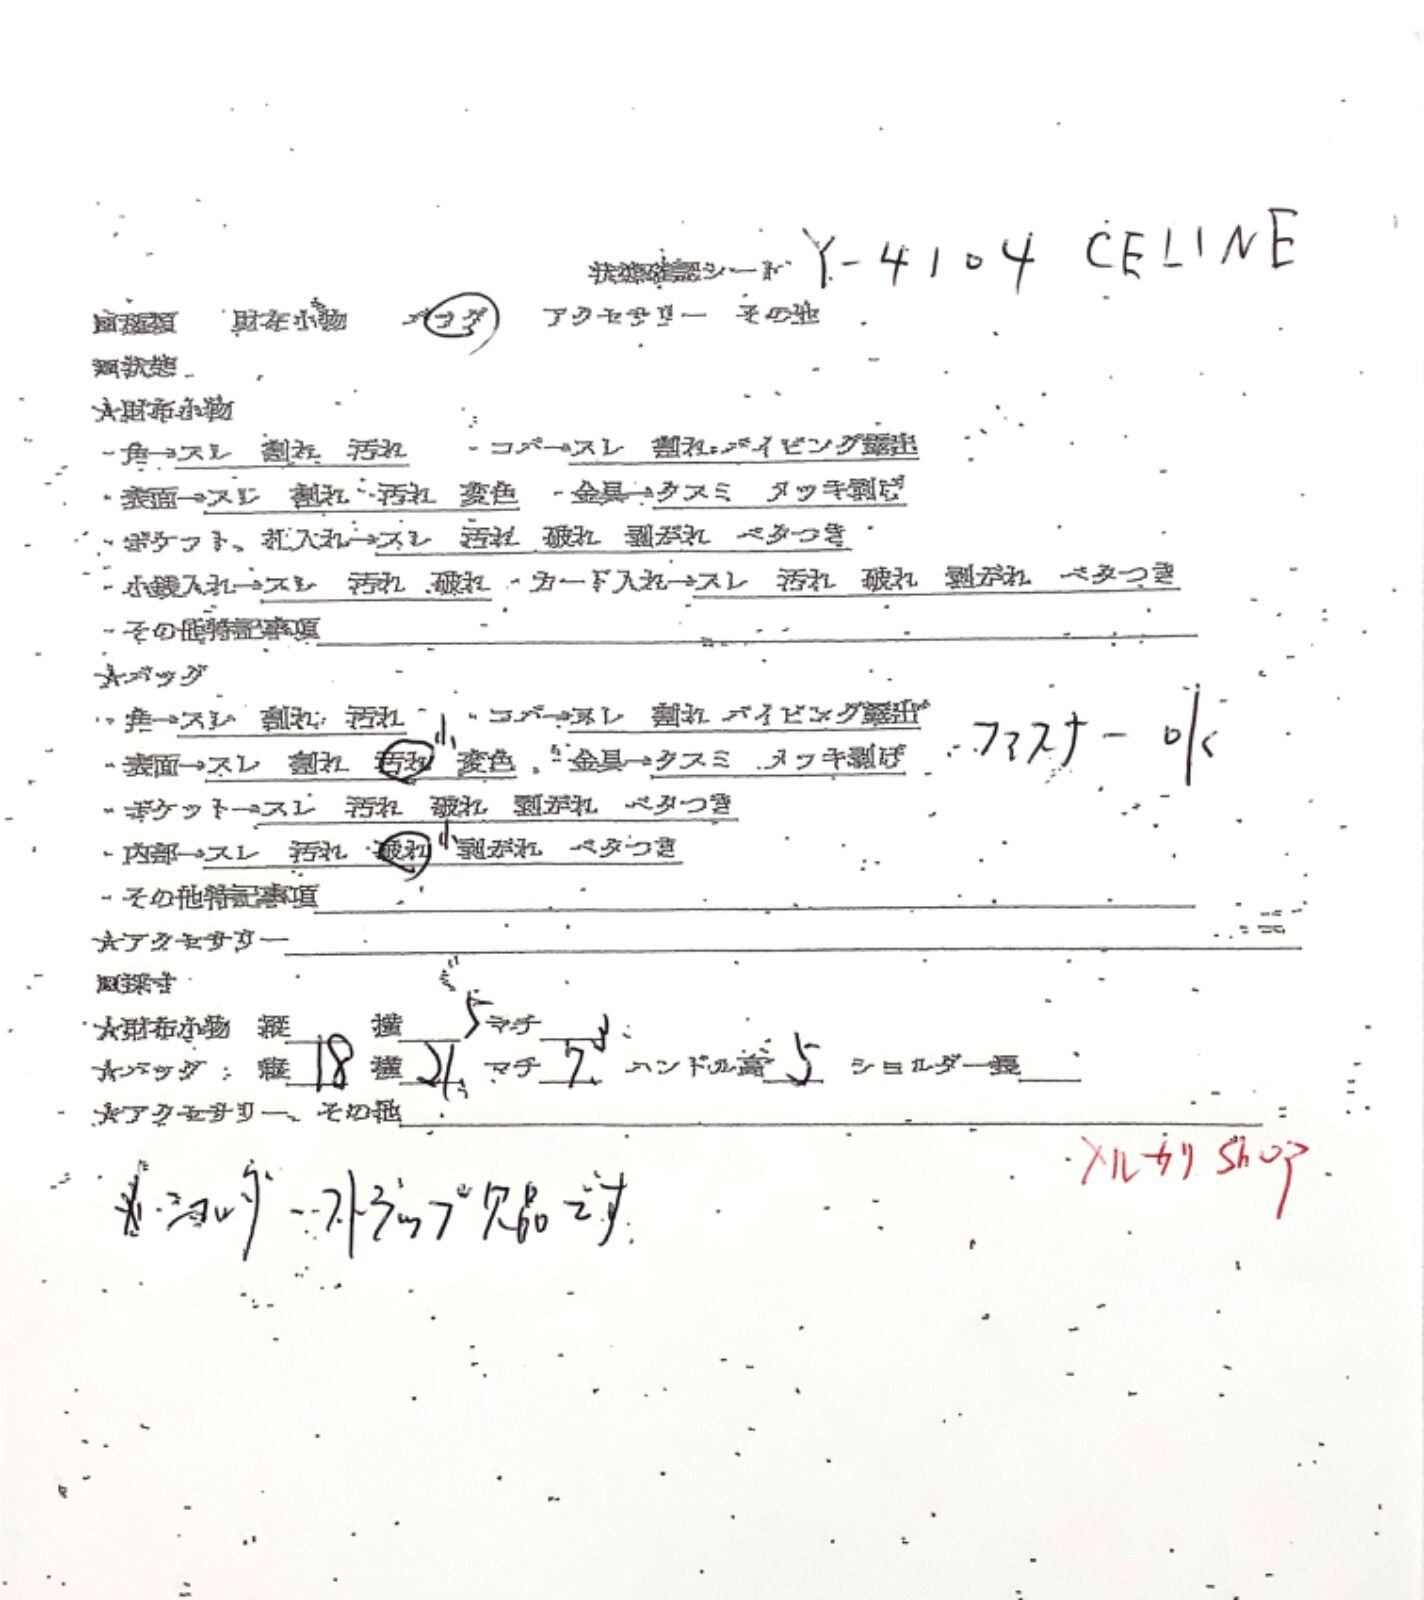 状態確認シート Y-4104 CELINE
■種類 財布小物 バッグ アクセサリー その他
■状態
★財布小物
・角→スレ 割れ 汚れ ・コバ→スレ 割れ パイピング露出
・表面→スレ 割れ 汚れ 変色 ・金具→クスミ メッキ剥げ
・ポケット、札入れ→スレ 汚れ 破れ 剥がれ ベタつき
・小銭入れ→スレ 汚れ 破れ ・カード入れ→スレ 汚れ 破れ 剥がれ ベタつき
・その他特記事項
★バッグ
・角→スレ 割れ 汚れ ・コバ→スレ 割れ パイピング露出
・表面→スレ 割れ 汚れ 小 変色 ・金具→クスミ メッキ剥げ ファスナー ok
・ポケット→スレ 汚れ 破れ 剥がれ ベタつき
・内部→スレ 汚れ 破れ 小 剥がれ ベタつき
・その他特記事項
★アクセサリー
■採寸
★財布小物 縦 横 マチ
★バッグ：縦 18 横 21.5 マチ 7 ハンドル高 5 ショルダー長
★アクセサリー、その他
メルカリ shop
※ショルダーストラップ欠品です